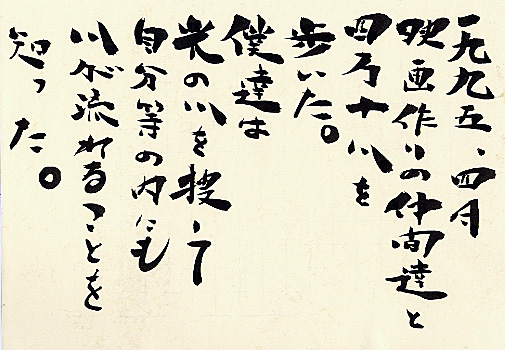 一九九五、四月
映画作りの仲間達と
四万十川を
歩いた。
僕達は
光の川を捜して
自分等の内にも
川が流れることを
知った。